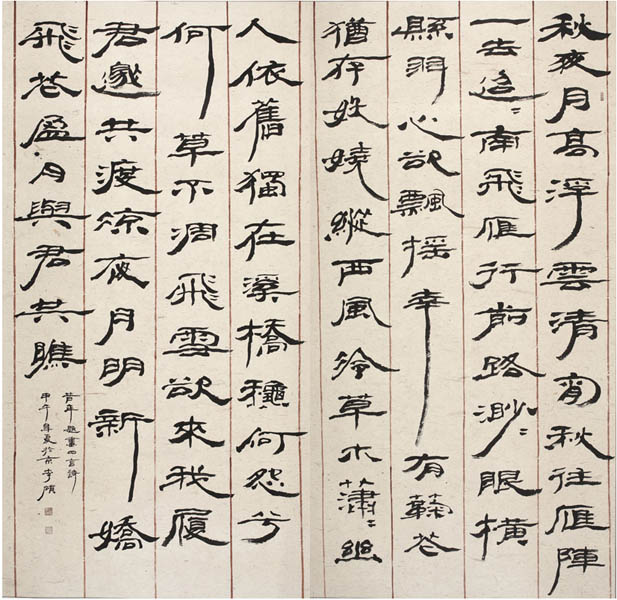 秋夜月高浮雲清宵秋往雁陣
一去迢〻南飛雁行前路渺〻眼橫
縣羽心欲飄搖幸有蘜花
猶存妖嬈縱西風冷草木蕭〻幽
人依舊獨在溪橋龝何怨兮
何草不凋飛雪欲來我履
君邀共渡涼夜月明新嬌
飛花盈月與君共瞧
昔年題畫四言詩
甲午年夏於京李